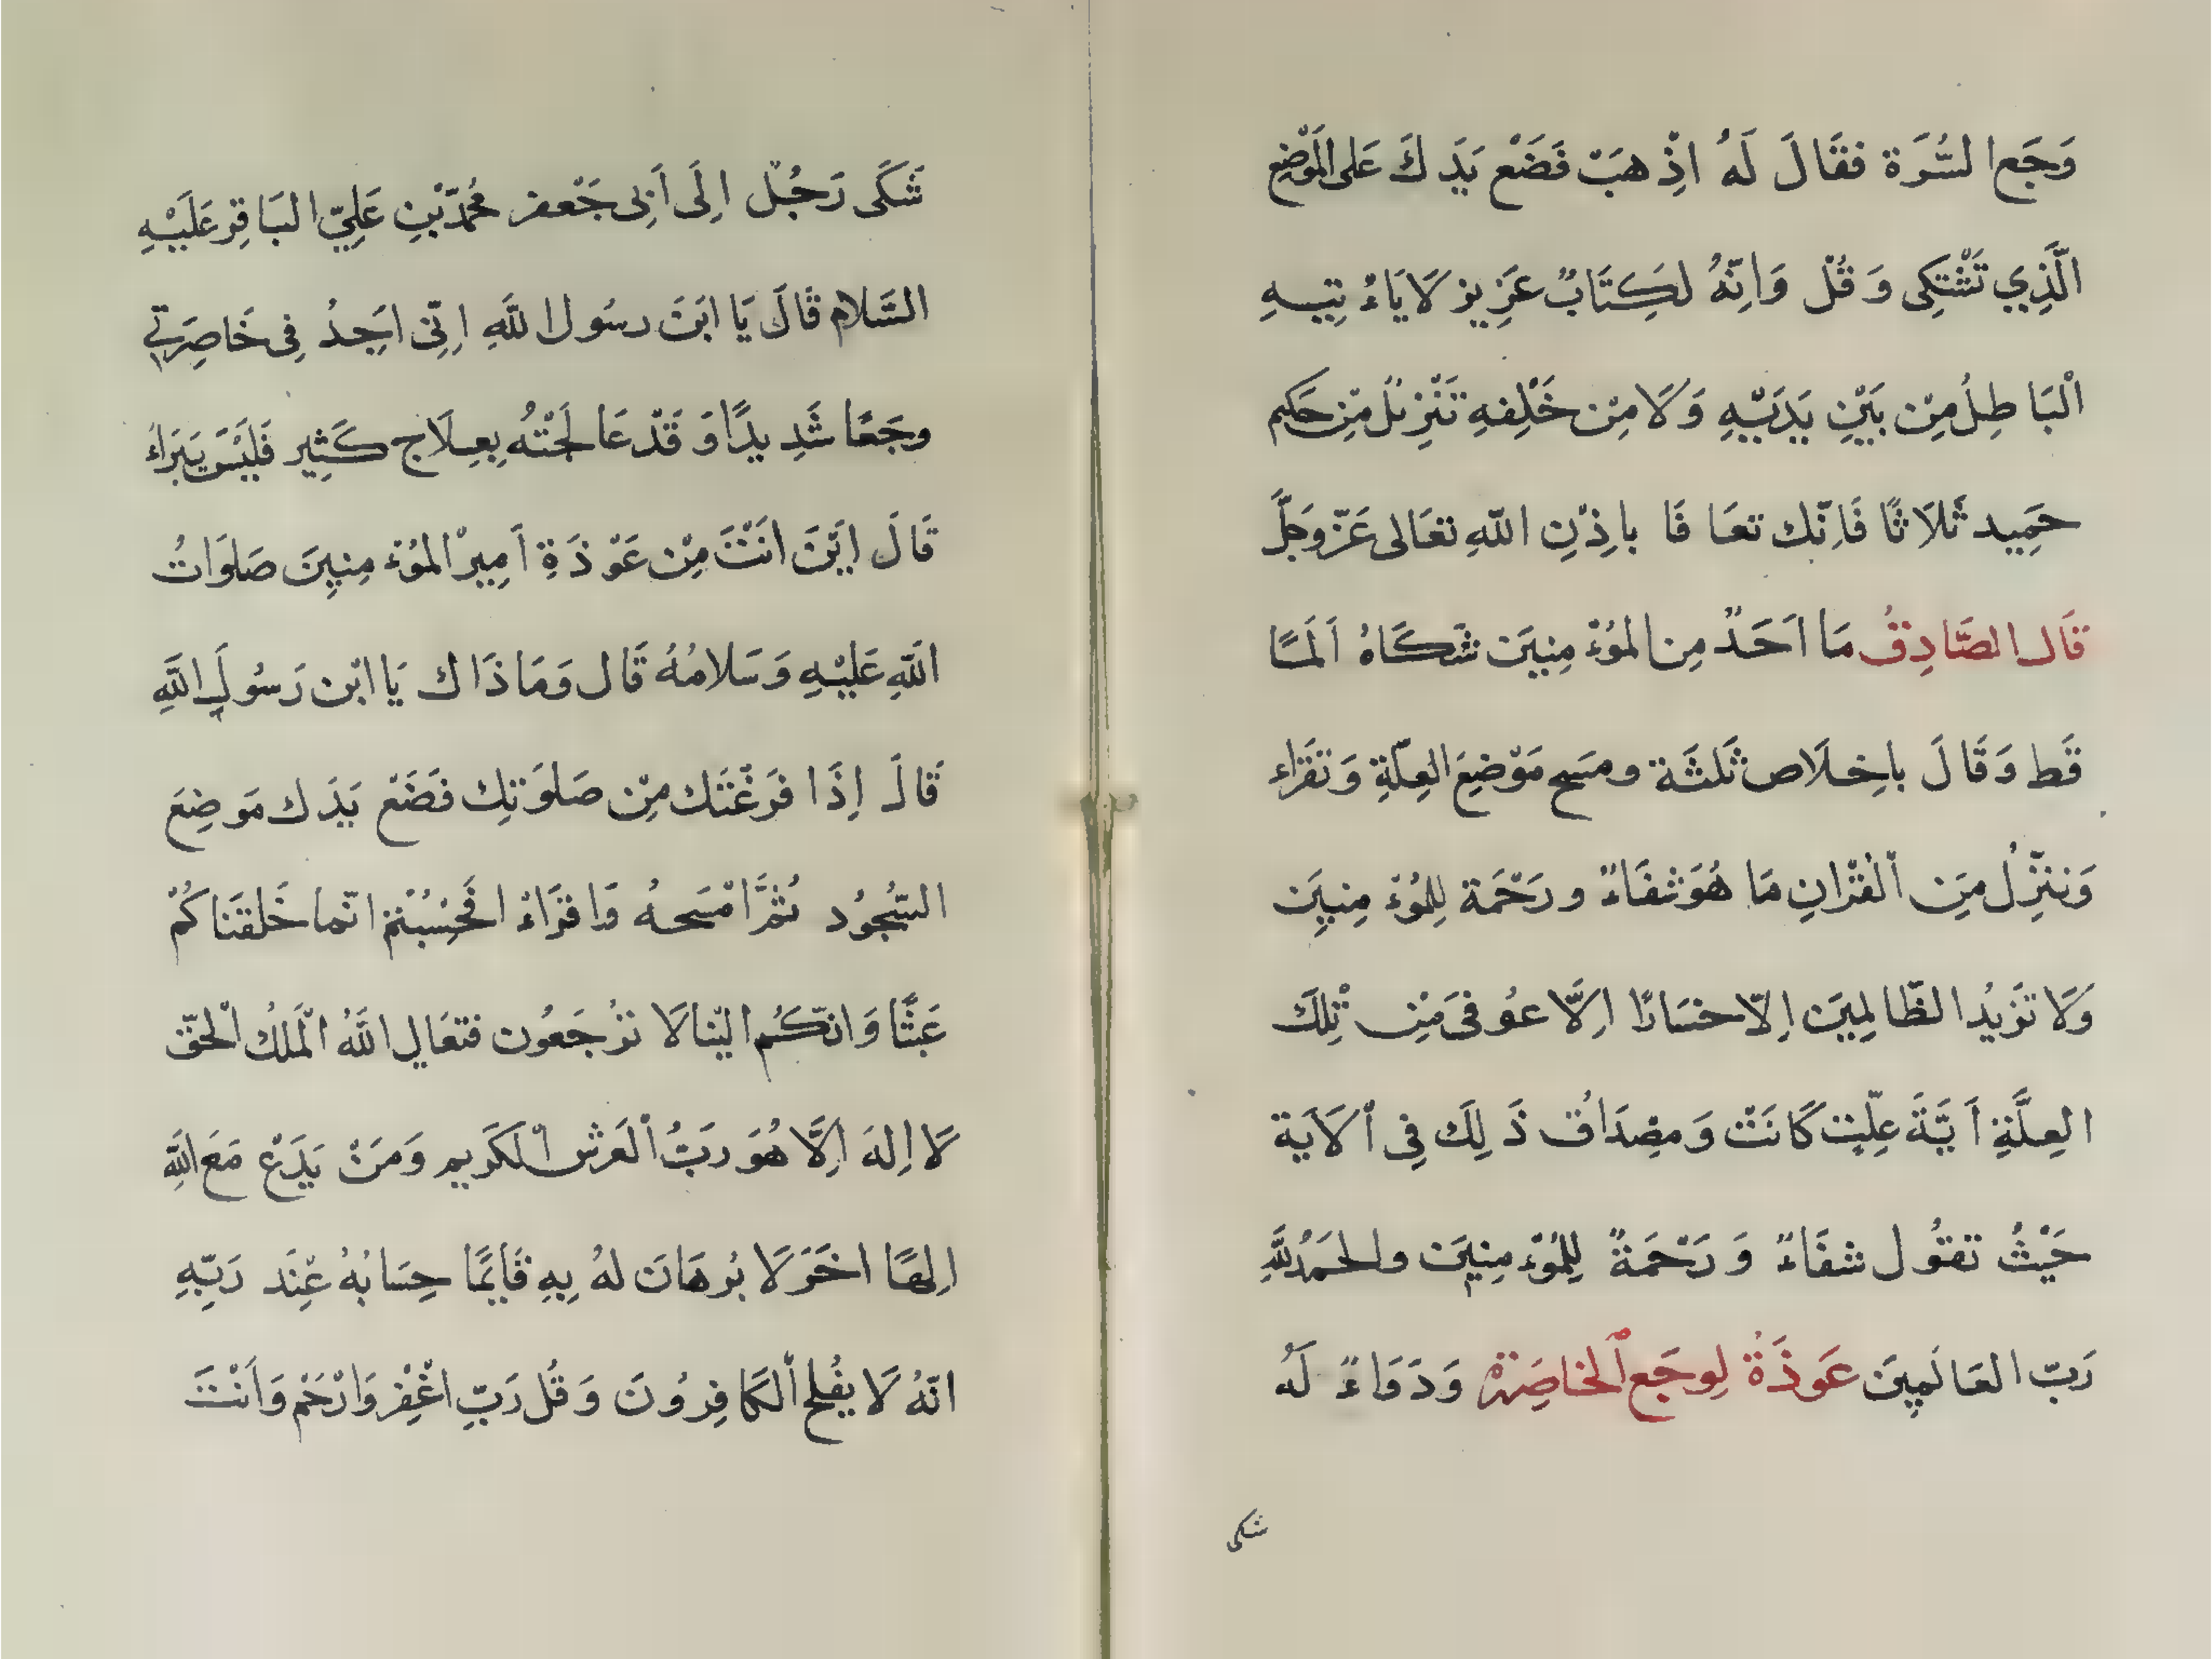 وَجَع السُّرَة فقَالَ لَهُ اذِْهبَْ فَضَعْ يَدَكَ عَلى المَوْضِع
الَّذِي تَشْتَكِى وَقُلْ وَانِّهُ لكِتَابٌ عَزِيز لَا يَاءْتِيهِ
الْبَاطِلُ مِنْ بَيْنِ يَدَيْهِ وَلَا مِنْ خَلْفِهِ تَنْزِيْلٌ مِنْ حَكِيم
حَمِيد ثَلَاثًا فَاِنّك تعَافَا باِذْنِ اللّهِ تعَالى عَزّ وَجَلَّ
قَال الصَّادِقُ مَا اَحَدٌ مِن المُوْءمِنِينَ شَكَاهُ اَلَمًا
قَط وَقَالَ باِخِلَاص ثَلثَة ومسَح مَوْضِعَ العِلّةِ وَتقَرَاء
وَننَزِّلُ مِنَ اْلقْرْانِ مَا هُوَ شفَاءٌ ورَحْمَة لِلمُوْءمِنِينَ
وَلَا تَزَيدُ الظّالِمِينَ اِلّا خسَارًا اِلَّا عوُفىَ مْنِ تْلِكَ
العِلَّةِ اَيَّةَ عِلّةٍ كَانَتْ وَمصْدَاقُ ذَلِكَ فِى اْلَايَة
حَيْثُ تقوُل شفَاءٌ وَرَحْمَةٌ لِلمُوْءمِنِينَ والحَمَدُ للَّهِ
رَبّ العَالَمِينَ عَوذَةُ لِوجَع اْلخاصِرَة وَدَوَاءٌ لَهُ
شكى
شَكَى رَجُلٌ الِىَ اَبِى جَعْفر مُحمّدْ بْنِ عَلِيّ البَاقِر عَلَيْهِ
السَّلام قَالَ يَا ابَنَ رسوُل اللَّهِ اِنّى اَجِدُ فِى خَاصِرَتِي
وجَعًا شَدِيدًا وَقَدْ عَالَجْتُه بِعِلَاجٍ كَثِير فَلَيْسَ يَبَرَاءُ
قَالَ ايَنَ انَْتَ مِنْ عَوْذَةِ اَمِيرْ المُوْءمِنِينَ صَلوَاتُ
اللّهِ عَلَيْهِ وَسَلامُهُ قَال وَمَا ذَاك يَا ابْن رَسُولَ اللَّهِ
قَالَ اِذَا فَرَغْتَك مِنْ صَلوَتِك فَضَعْ يَدَك مَوضِعَ
السّجُوُد ثمَّ امْسَحهُ وَاقرَاءْ افَحسِْبْتُمْ انّما خَلقنَاكُمْ
عَبثًا وَانّكُم اليّنا لَا ترُجَعوُن فتعَالى اللَّهُ الَملُك اْلحَقّ
لَا اِلهَ اِلَّا هُوَ رَبُّ اْلعَرشْ اْلكَرَيم وَمَنْ يَدَعْ مَعَ اللَّهِ
اِلهًا اخَرَ لَا برُهَانَ لهُ بِهِ فَاِنمَّا حِسَابُهُ عِنْدَ رَبّهِ
انّهُ لَا يفُلح اْلكَافِرُونَ وَقُل رَبِّ اغْفِرْ وَارْحَمْ وَاَنْتَ